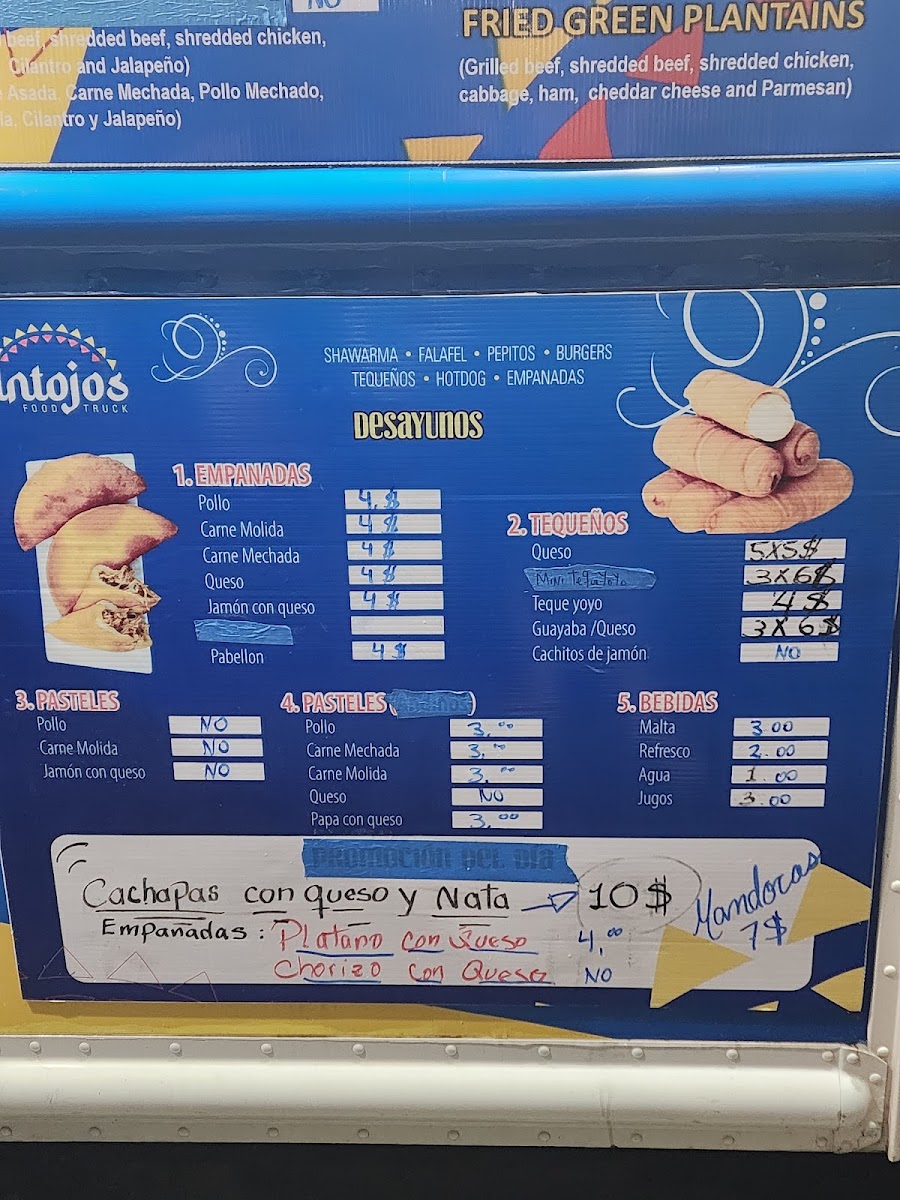 NO
beef, shredded beef, shredded chicken,
Cilantro and Jalapeño)
Asada, Carne Mechada, Pollo Mechado,
Cilantro y Jalapeño)
FRIED GREEN PLANTAINS
(Grilled beef, shredded beef, shredded chicken,
cabbage, ham, cheddar cheese and Parmesan)
antojos
FOOD TRUCK
SHAWARMA • FALAFEL • PEPITOS • BURGERS
TEQUEÑOS • HOTDOG • EMPANADAS
DESAYUNOS
1. EMPANADAS
Pollo 4,$
Carne Molida 4$
Carne Mechada 4$
Queso 4$
Jamón con queso 4$
Pabellon 4$
2. TEQUEÑOS
Queso 5X5$
Mini 3X6$
Teque yoyo 4$
Guayaba /Queso 3X6$
Cachitos de jamón NO
3. PASTELES
Pollo NO
Carne Molida NO
Jamón con queso NO
4. PASTELES ( )
Pollo 3,00
Carne Mechada 3,00
Carne Molida 3,00
Queso NO
Papa con queso 3,00
5. BEBIDAS
Malta 3.00
Refresco 2.00
Agua 1.00
Jugos 3.00
PROMOCIÓN DEL DIA
Cachapas con queso y Nata → 10$
Empanadas: Platano con Queso 4,00
Chorizo con Queso NO
Mandocas
7$